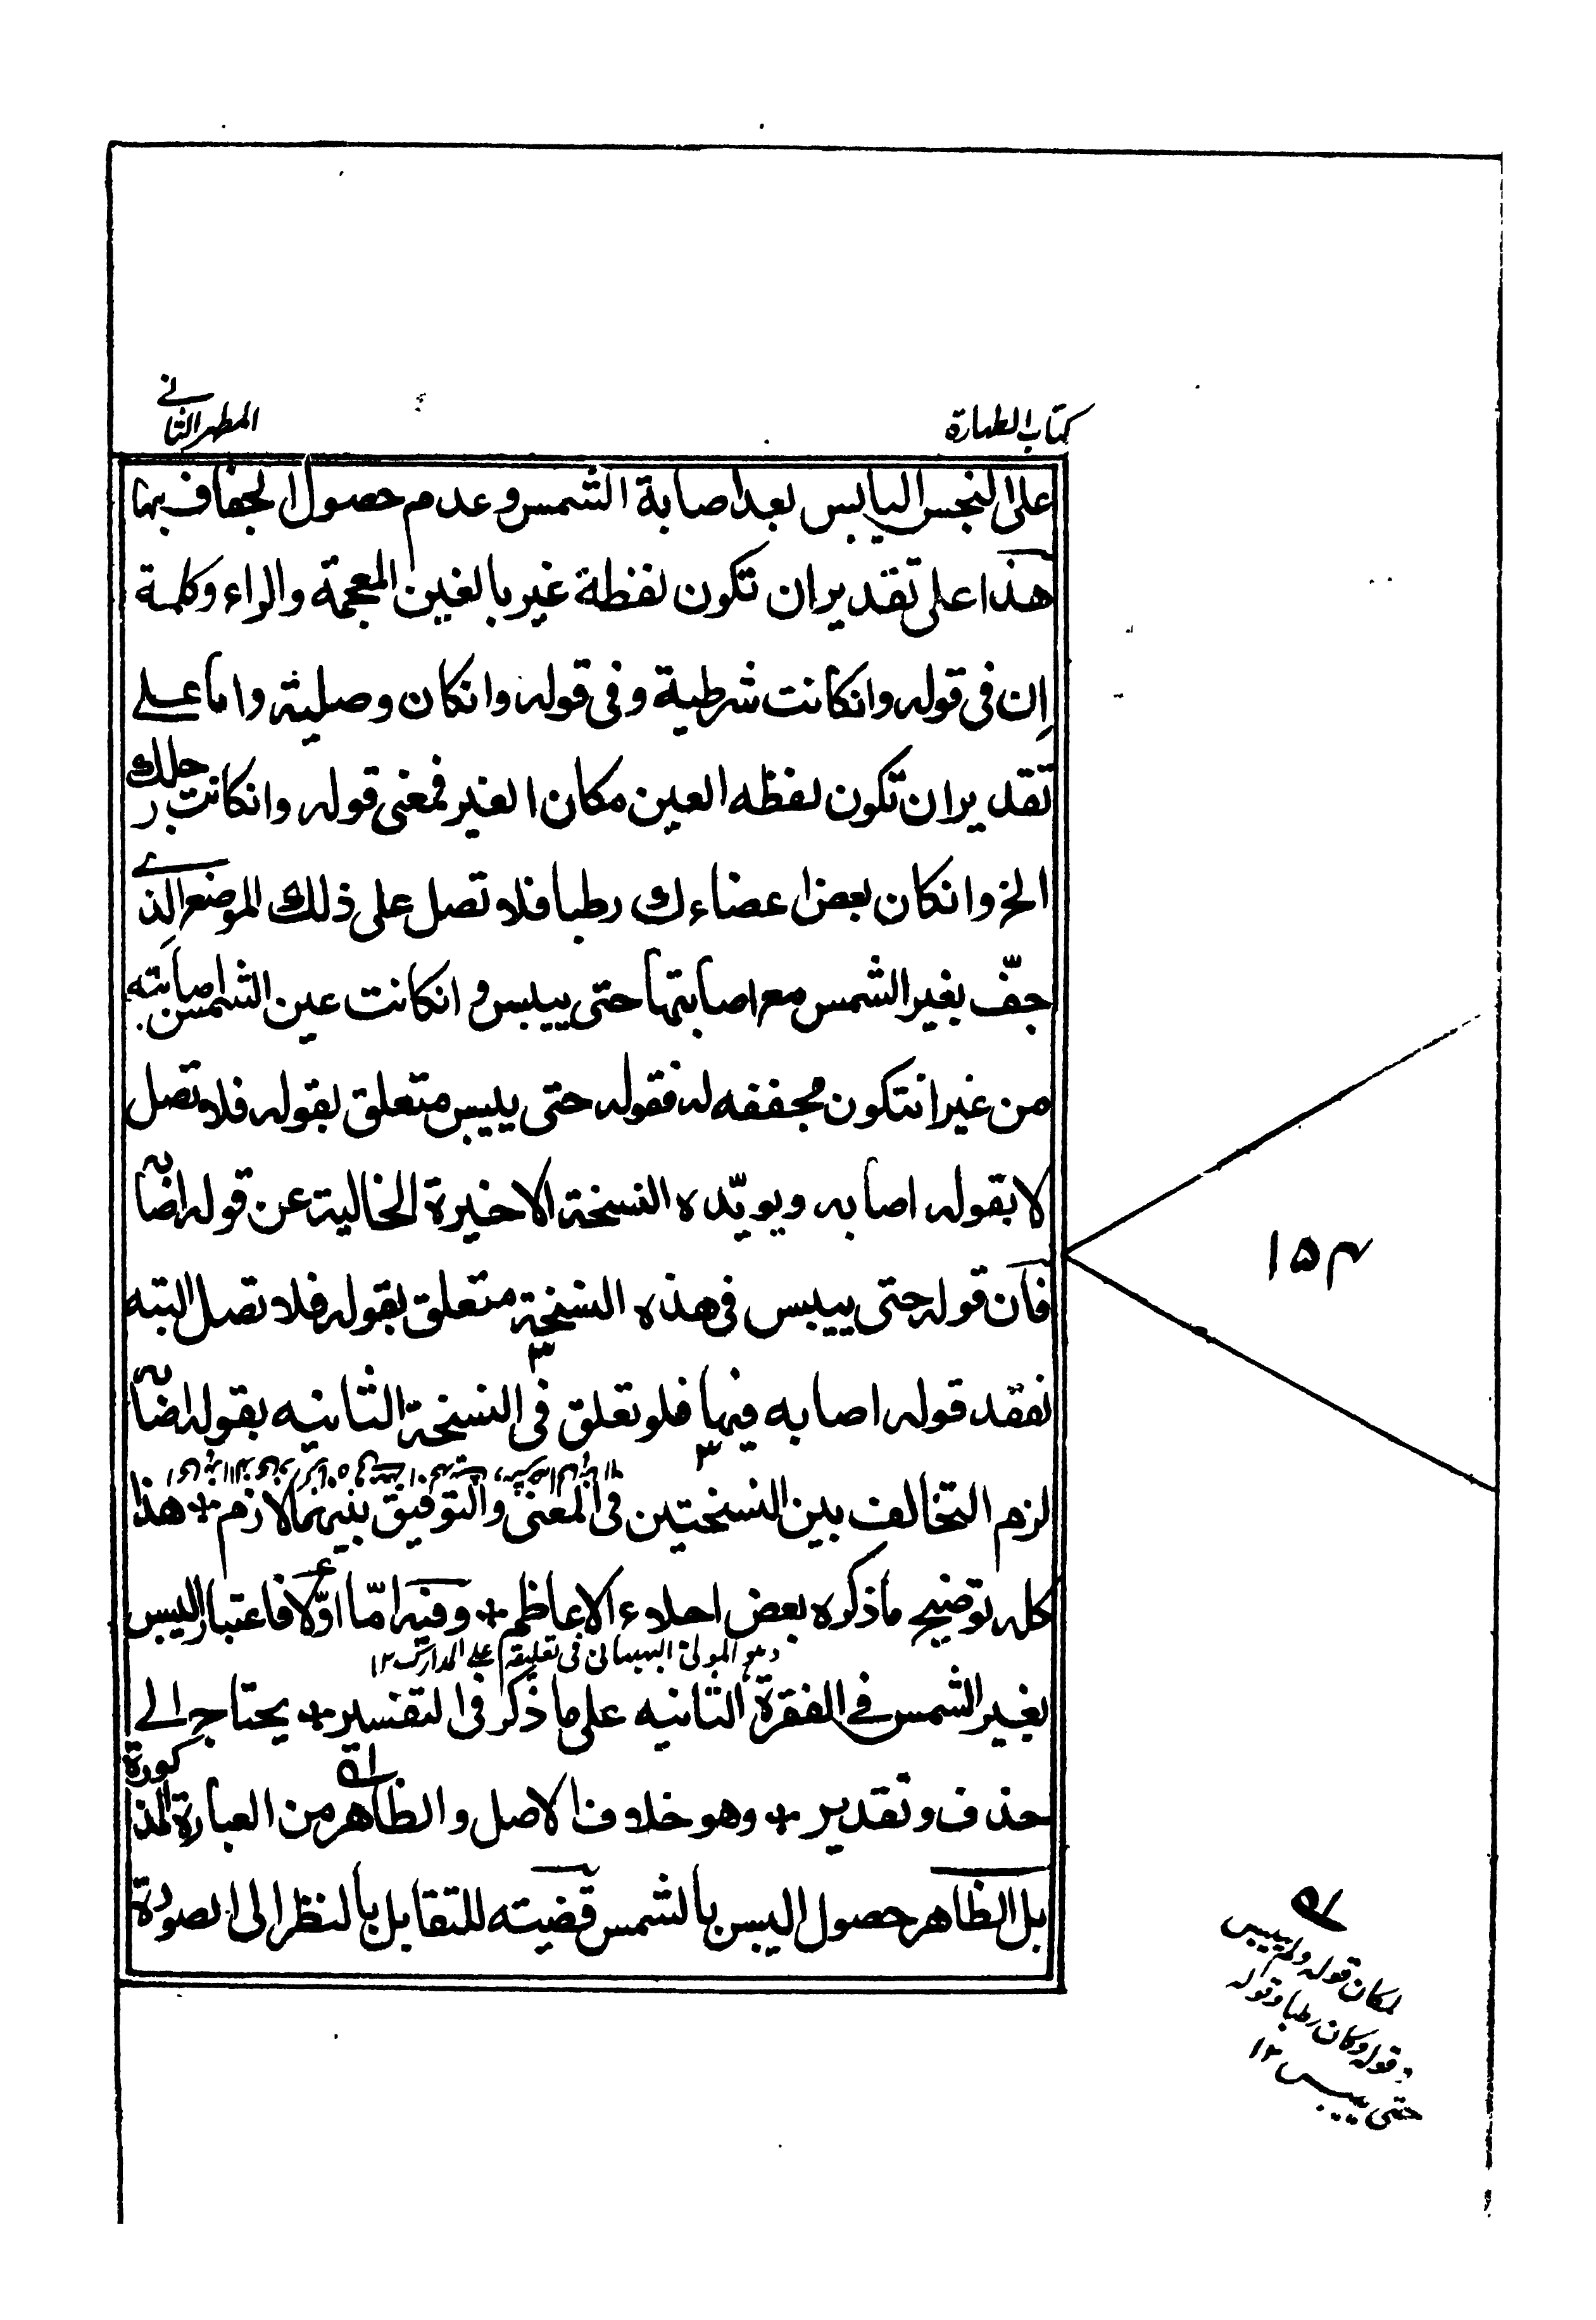 كتاب الطهارة
المطهر الثاني
على النجس اليابس بعد اصابة الشمس و عدم حصول الجفاف بها
هذا على تقدير ان تكون لفظة غير بالغين المعجمة والراء وكلمة
اِن فى قوله وانكانت شرطية وفى قوله وانكان وصلية واما على
تقدير ان تكون لفظه العين مكان الغير فمعنى قوله وانكانت رجلك
الخ وانكان بعض اعضاءك رطبا فلا تصل على ذلك الموضع الذى
جفّ بغير الشمس مع اصابتها حتى ييبس و انكانت عين الشمس اصابته
من غير انتكون مجففه له فقوله حتى ييبس متعلق بقوله فلا تصل
لا بقوله اصابه ويويّده النسخة الاخيرة الخالية عن قوله اصابه
فان قوله حتى ييبس فى هذه النسخة متعلق بقوله فلا تصل البته
لفقد قوله اصابه فيها فلو تعلق فى النسخة الثانيه بقوله اصابه
لزم التخالف بين النسختين فى المعنى والتوفيق بينهما لازم * هذا
كله توضيح ماذكره بعض اجلاء الاعاظم * وفيه امّا اوّلا فاعتبار اليبس
وهو المولى البهبهانى فى تعليقه على المدارك ١٢
بغير الشمس فى الفقرة الثانيه على ما ذكر فى التفسير * يحتاج الى
حذف وتقدير * وهو خلاف الاصل و الظاهر من العبارة المذكورة
بل الظاهر حصول اليبس بالشمس قضيته للتقابل بالنظر الى الصورة
١٥٤
لمكان قوله ولم ييبس
قوله وكان رطبا وقوله
حتى ييبس ١٢